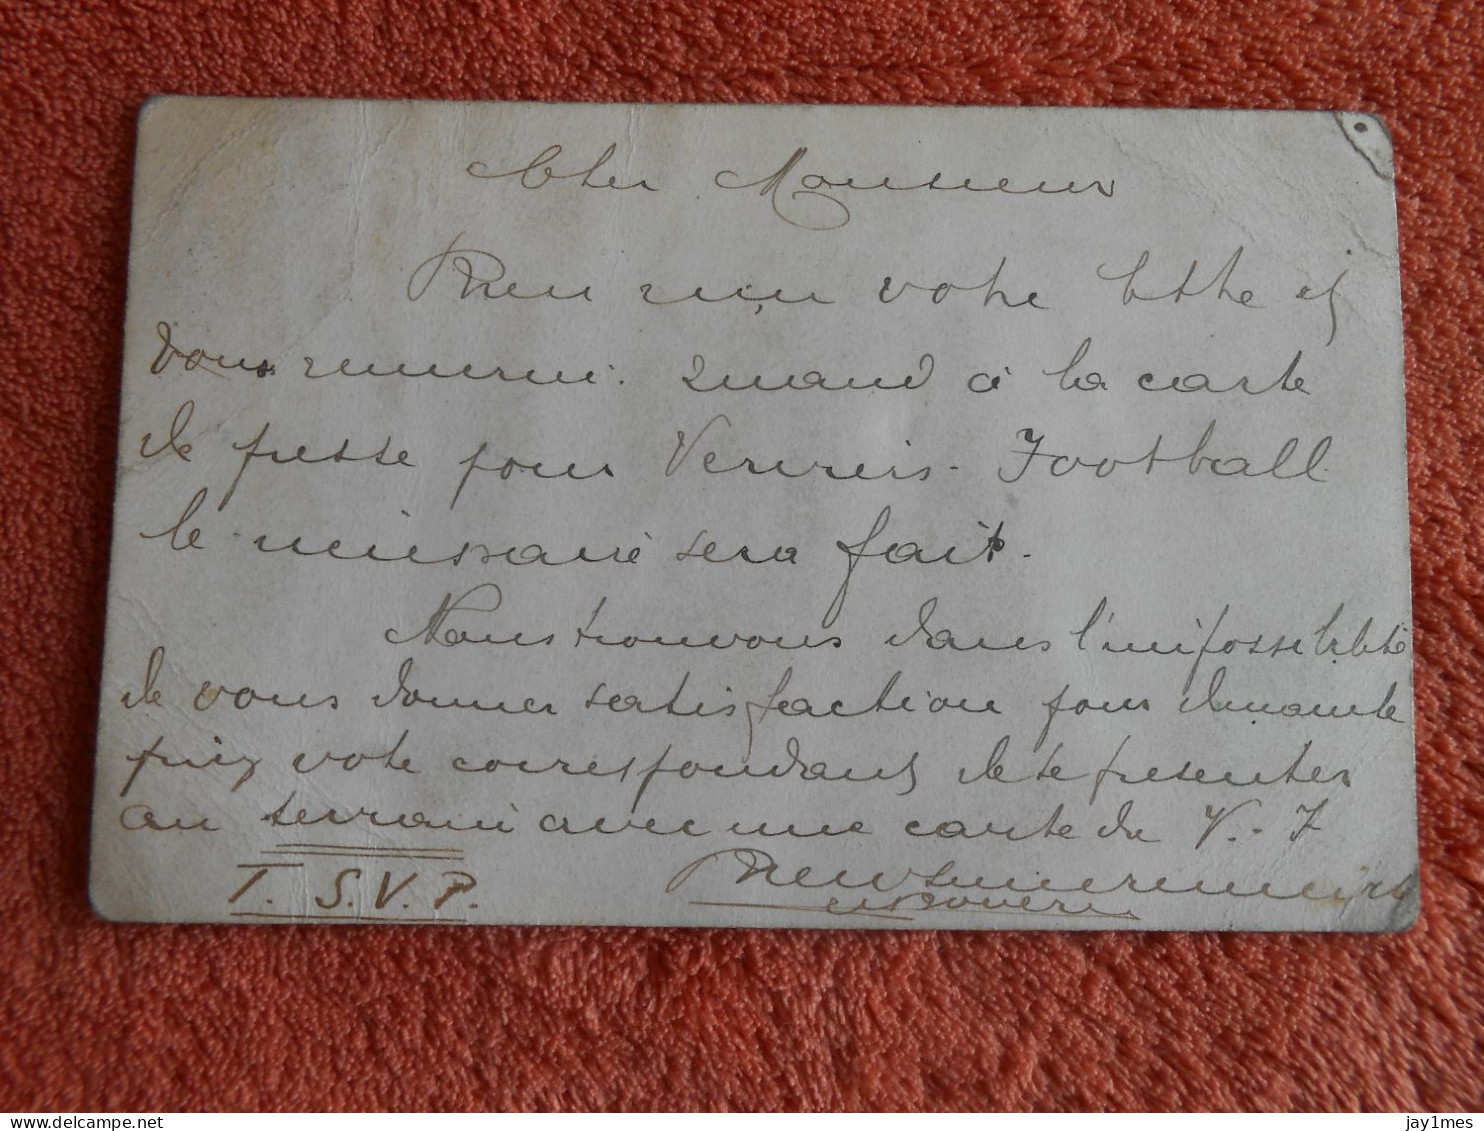 Cher Monsieur
Bien reçu votre lettre et
vous remercie. Quand à la carte
de presse pour Verviers-Football
le nécessaire sera fait.
Nous trouvons dans l'impossibilité
de vous donner satisfaction pour demande
priez votre correspondant de se presenter
au terrain avec une carte de V.-F
T. S.V.P. Bien sincerement
jay1mes